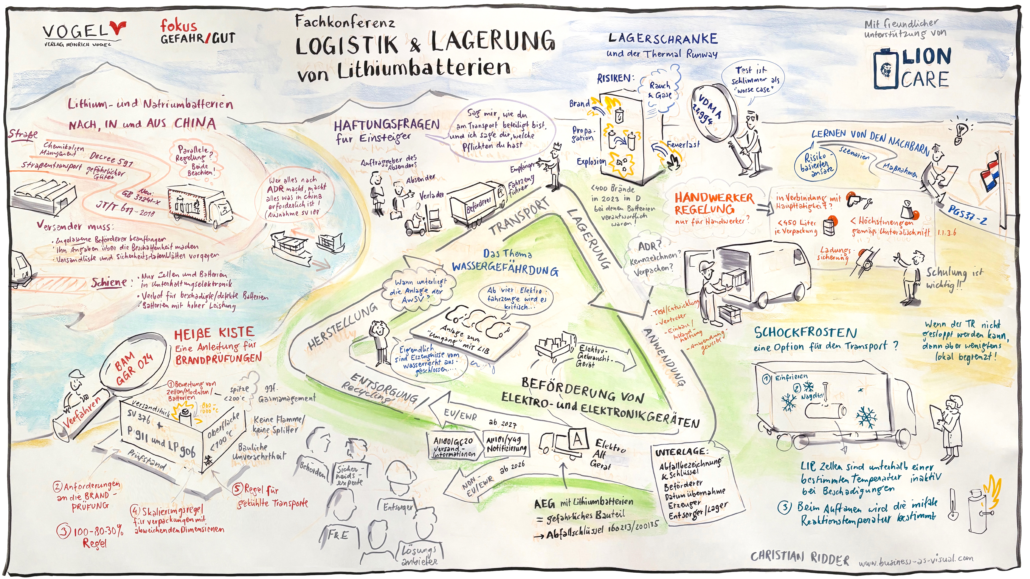 VOGEL
VERLAG HEINRICH VOGEL
fokus
GEFAHR/GUT
Fachkonferenz
LOGISTIK & LAGERUNG
von Lithiumbatterien
LAGERSCHRANKE
und der Thermal Runway
Mit freundlicher
Unterstützung von
LION
CARE
Lithium- und Natriumbatterien
NACH, IN und AUS CHINA
Straße
Chemikalien
Decree 591
Straßentransport gefährlicher
Güter
JT/T 617-2018
Parallele
Regelung
Beide
Beachten!
Wer alles nach
ADR macht, macht
alles was in China
erforderlich ist!
Ausnahme SV 188
Versender muss:
• Zugelassene Beförderer beauftragen
• Ihn Angaben über die Beschaffenheit machen
• Versandliste und Sicherheitsdatenblätter vorgeben
Schiene:
• Nur Zellen und Batterien
in Unterhaltungselektronik
• Verbot für beschädigte/defekte Batterien
• Batterien mit hoher Leistung
HAFTUNGSFRAGEN
für Einsteiger
Sag mir, wie du
am Transport beteiligt bist,
und ich sage dir, welche
Pflichten du hast
Auftraggeber des
Absenders
Absender
Verlader
Beförderer
Fahrzeug
führer
Empfänger
RISIKEN:
Rauch
& Gase
Brand
Propa-
gation
Explosion
Feuerlast
Test ist
schlimmer als
"worse case"
VDMA
24994
<400 Brände
in 2023 in D
bei denen Batterien
verantwortlich
waren
LERNEN VON DEN NACHBARN
Risiko
basierter
Ansatz
Szenarien
Maßnahmen
PGS37-2
HANDWERKER
REGELUNG
nur für Handwerker?
in Verbindung mit
Haupttätigkeit?
<450 Liter
je Verpackung
< Höchstmengen
gemäß Unterabschnitt 1.1.3.6
Ladungs
sicherung
ADR?
Kennzeichnen?
Verpacken?
Schulung ist
wichtig!!
TRANSPORT
LAGERUNG
ANWENDUNG
ENTSORGUNG
Recycling
HERSTELLUNG
Das Thema
WASSERGEFÄHRDUNG
Wann unterliegt
die Anlage der
AwSV
Ab vier Elektro
fahrzeuge wird es
kritisch...
Anlage zum
"Umgang" mit LIB
Eigentlich
sind Erzeugnisse vom
Wasserrecht aus-
geschlossen...
Elektro-
Gebraucht-
Gerät
BEFÖRDERUNG VON
ELEKTRO- und ELEKTRONIKGERÄTEN
HEIßE KISTE
Eine Anleitung für
BRANDPRÜFUNGEN
BAM
GGR 024
Verfahren
① Bewertung von
Zellen/Modulen/
Batterien
Versandstück
SV 376 &
P 911 und LP 906
Prüfstand
Oberfläche
<100 °C
spitze
<200°C
ggf.
Gasmanagement
Keine Flamme/
keine Splitter
Bauliche
Unversehrtheit
② Anforderungen
an die BRAND-
PRÜFUNG
③ 100-80-30%
Regel
④ Skalierungsregel
für Verpackungen mit
abweichenden Dimensionen
⑤ Regel für
gekühlte Transporte
Behörden
Sicher-
heits-
experte
Entsorger
F&E
Lösungs
anbieter
EU/EWR
ab 2027
Versand-
informationen
Notifizierung
NON-
EU/EWR
ab 2026
A
Elektro
Alt
Gerät
AEG mit Lithiumbatterien
= gefährliches Bauteil
→ Abfallschlüssel 160213/200135
UNTERLAGE:
Abfallbezeichnung
& Schlüssel
Beförderer
Datum Übernahme
Erzeuger
Entsorger/Lager
SCHOCKFROSTEN
eine Option für den Transport?
Wenn der TR nicht
gestoppt werden kann,
dann aber wenigstens
lokal begrenzt!
① Einfrieren
LIB Zellen sind unterhalb einer
bestimmten Temperatur inaktiv
bei Beschädigungen
③ Beim Auftauen wird die initiale
Reaktionstemperatur bestimmt
CHRISTIAN RIDDER www.business-as-visual.com